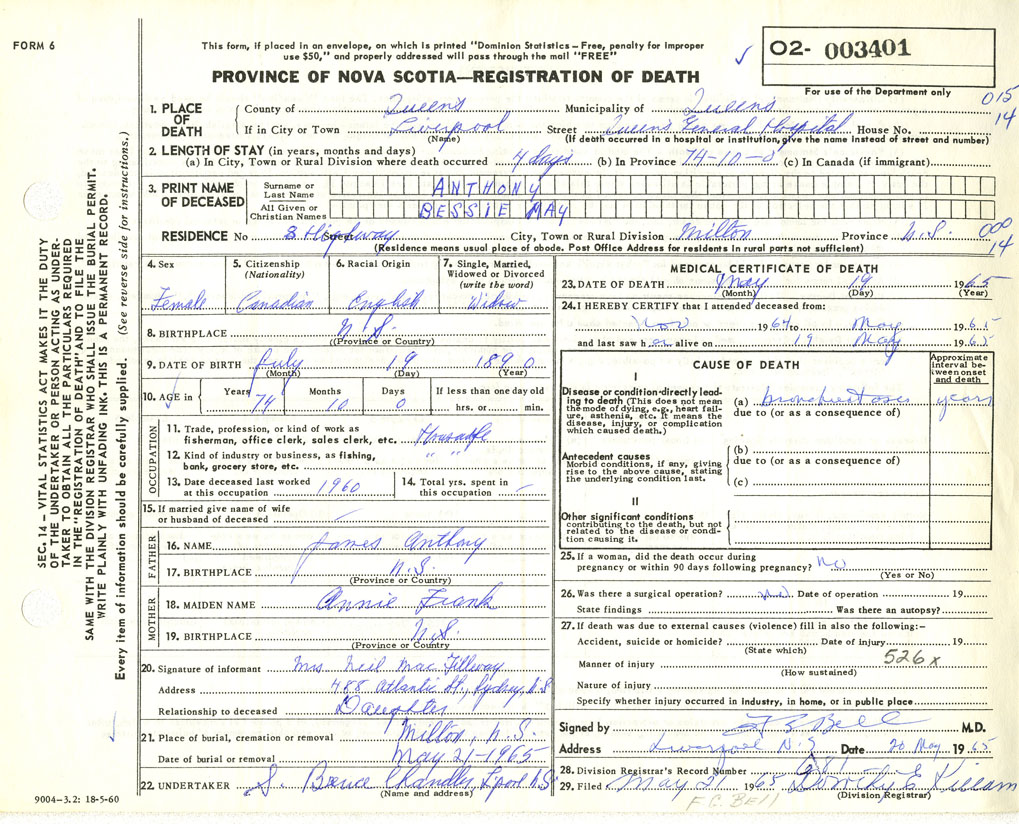 FORM 6
This form, if placed in an envelope, on which is printed "Dominion Statistics – Free, penalty for improper
use $50," and properly addressed will pass through the mail "FREE"
PROVINCE OF NOVA SCOTIA—REGISTRATION OF DEATH
02- 003401
For use of the Department only
015
14
1. PLACE OF DEATH
County of Queen's Municipality of Queen's
If in City or Town Liverpool Street Queen's General Hospital House No.
(Name) (If death occurred in a hospital or institution, give the name instead of street and number)
2. LENGTH OF STAY (in years, months and days)
(a) In City, Town or Rural Division where death occurred 4 days (b) In Province 74-10-0 (c) In Canada (if immigrant)
3. PRINT NAME OF DECEASED
Surname or Last Name ANTHONY
All Given or Christian Names BESSIE MAY
RESIDENCE No 8 Highway Street City, Town or Rural Division Milton Province N.S.
000
14
(Residence means usual place of abode. Post Office Address for residents in rural parts not sufficient)
4. Sex
Female
5. Citizenship
(Nationality)
Canadian
6. Racial Origin
English
7. Single, Married,
Widowed or Divorced
(write the word)
Widow
8. BIRTHPLACE N.S.
(Province or Country)
9. DATE OF BIRTH July 19 1890
(Month) (Day) (Year)
10. AGE in
Years 74
Months 10
Days 0
If less than one day old
hrs. or min.
OCCUPATION
11. Trade, profession, or kind of work as
fisherman, office clerk, sales clerk, etc. Housewife
12. Kind of industry or business, as fishing,
bank, grocery store, etc. " "
13. Date deceased last worked
at this occupation 1960
14. Total yrs. spent in
this occupation —
15. If married give name of wife
or husband of deceased —
FATHER
16. NAME James Anthony
17. BIRTHPLACE N.S.
(Province or Country)
MOTHER
18. MAIDEN NAME Annie Frank
19. BIRTHPLACE N.S.
(Province or Country)
20. Signature of informant Mrs Neil Mac
Address 488 Atlantic St., Sydney, N.S
Relationship to deceased Daughter
21. Place of burial, cremation or removal Milton, N.S.
Date of burial or removal May 21-1965
22. UNDERTAKER S. Bruce Chandler L'pool N.S.
(Name and address)
MEDICAL CERTIFICATE OF DEATH
23. DATE OF DEATH May 19 1965
(Month) (Day) (Year)
24. I HEREBY CERTIFY that I attended deceased from:
Nov 1964 to May 1965
and last saw her alive on 19 May 1965
CAUSE OF DEATH
Approximate
interval be-
tween onset
and death
I
Disease or condition directly lead-
ing to death (This does not mean
the mode of dying, e.g., heart fail-
ure, asthenia, etc. It means the
disease, injury, or complication
which caused death.)
(a) bronchiectases years
due to (or as a consequence of)
Antecedent causes
Morbid conditions, if any, giving
rise to the above cause, stating
the underlying condition last.
(b)
due to (or as a consequence of)
(c)
II
Other significant conditions
contributing to the death, but not
related to the disease or condi-
tion causing it.
25. If a woman, did the death occur during
pregnancy or within 90 days following pregnancy? No
(Yes or No)
26. Was there a surgical operation? no Date of operation 19
State findings Was there an autopsy?
27. If death was due to external causes (violence) fill in also the following:–
Accident, suicide or homicide? Date of injury 19
(State which)
526x
Manner of injury
(How sustained)
Nature of injury
Specify whether injury occurred in industry, in home, or in public place
Signed by F C Bell M.D.
Address Liverpool N.S Date 20 May 1965
28. Division Registrar's Record Number
29. Filed May 21 1965 Dorothy E Killam
(Division Registrar)
F.C. BELL
SEC. 14 – VITAL STATISTICS ACT MAKES IT THE DUTY
OF THE UNDERTAKER OR PERSON ACTING AS UNDER-
TAKER TO OBTAIN ALL THE PARTICULARS REQUIRED
IN THE "REGISTRATION OF DEATH" AND TO FILE THE
SAME WITH THE DIVISION REGISTRAR WHO SHALL ISSUE THE BURIAL PERMIT.
WRITE PLAINLY WITH UNFADING INK. THIS IS A PERMANENT RECORD.
Every item of information should be carefully supplied. (See reverse side for instructions.)
9004-3.2: 18-5-60